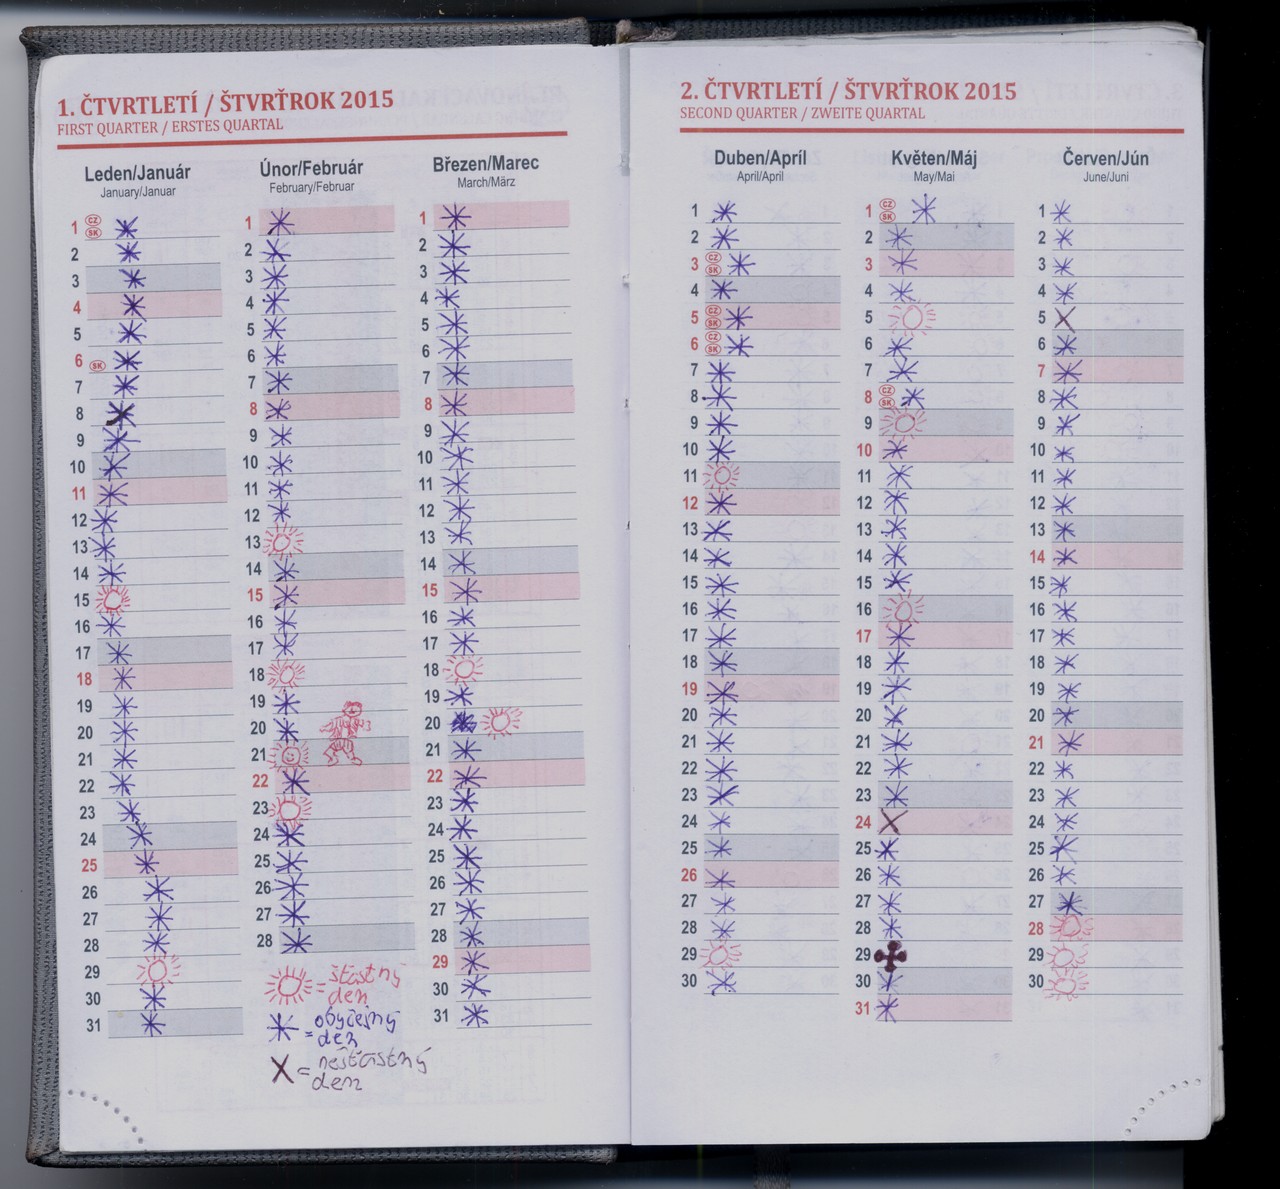 1. ČTVRTLETÍ / ŠTVRŤROK 2015
FIRST QUARTER / ERSTES QUARTAL
Leden/Január
January/Januar
1 CZ SK
2
3
4
5
6 SK
7
8
9
10
11
12
13
14
15
16
17
18
19
20
21
22
23
24
25
26
27
28
29
30
31
Únor/Február
February/Februar
1
2
3
4
5
6
7
8
9
10
11
12
13
14
15
16
17
18
19
20
21
22
23
24
25
26
27
28
= šťastný
den
= obyčejný
den
X = nešťastný
den
Březen/Marec
March/März
1
2
3
4
5
6
7
8
9
10
11
12
13
14
15
16
17
18
19
20
21
22
23
24
25
26
27
28
29
30
31
2. ČTVRTLETÍ / ŠTVRŤROK 2015
SECOND QUARTER / ZWEITE QUARTAL
Duben/Apríl
April/April
1
2
3 CZ SK
4
5 CZ SK
6 CZ SK
7
8
9
10
11
12
13
14
15
16
17
18
19
20
21
22
23
24
25
26
27
28
29
30
Květen/Máj
May/Mai
1 CZ SK
2
3
4
5
6
7
8 CZ SK
9
10
11
12
13
14
15
16
17
18
19
20
21
22
23
24
25
26
27
28
29
30
31
Červen/Jún
June/Juni
1
2
3
4
5
6
7
8
9
10
11
12
13
14
15
16
17
18
19
20
21
22
23
24
25
26
27
28
29
30